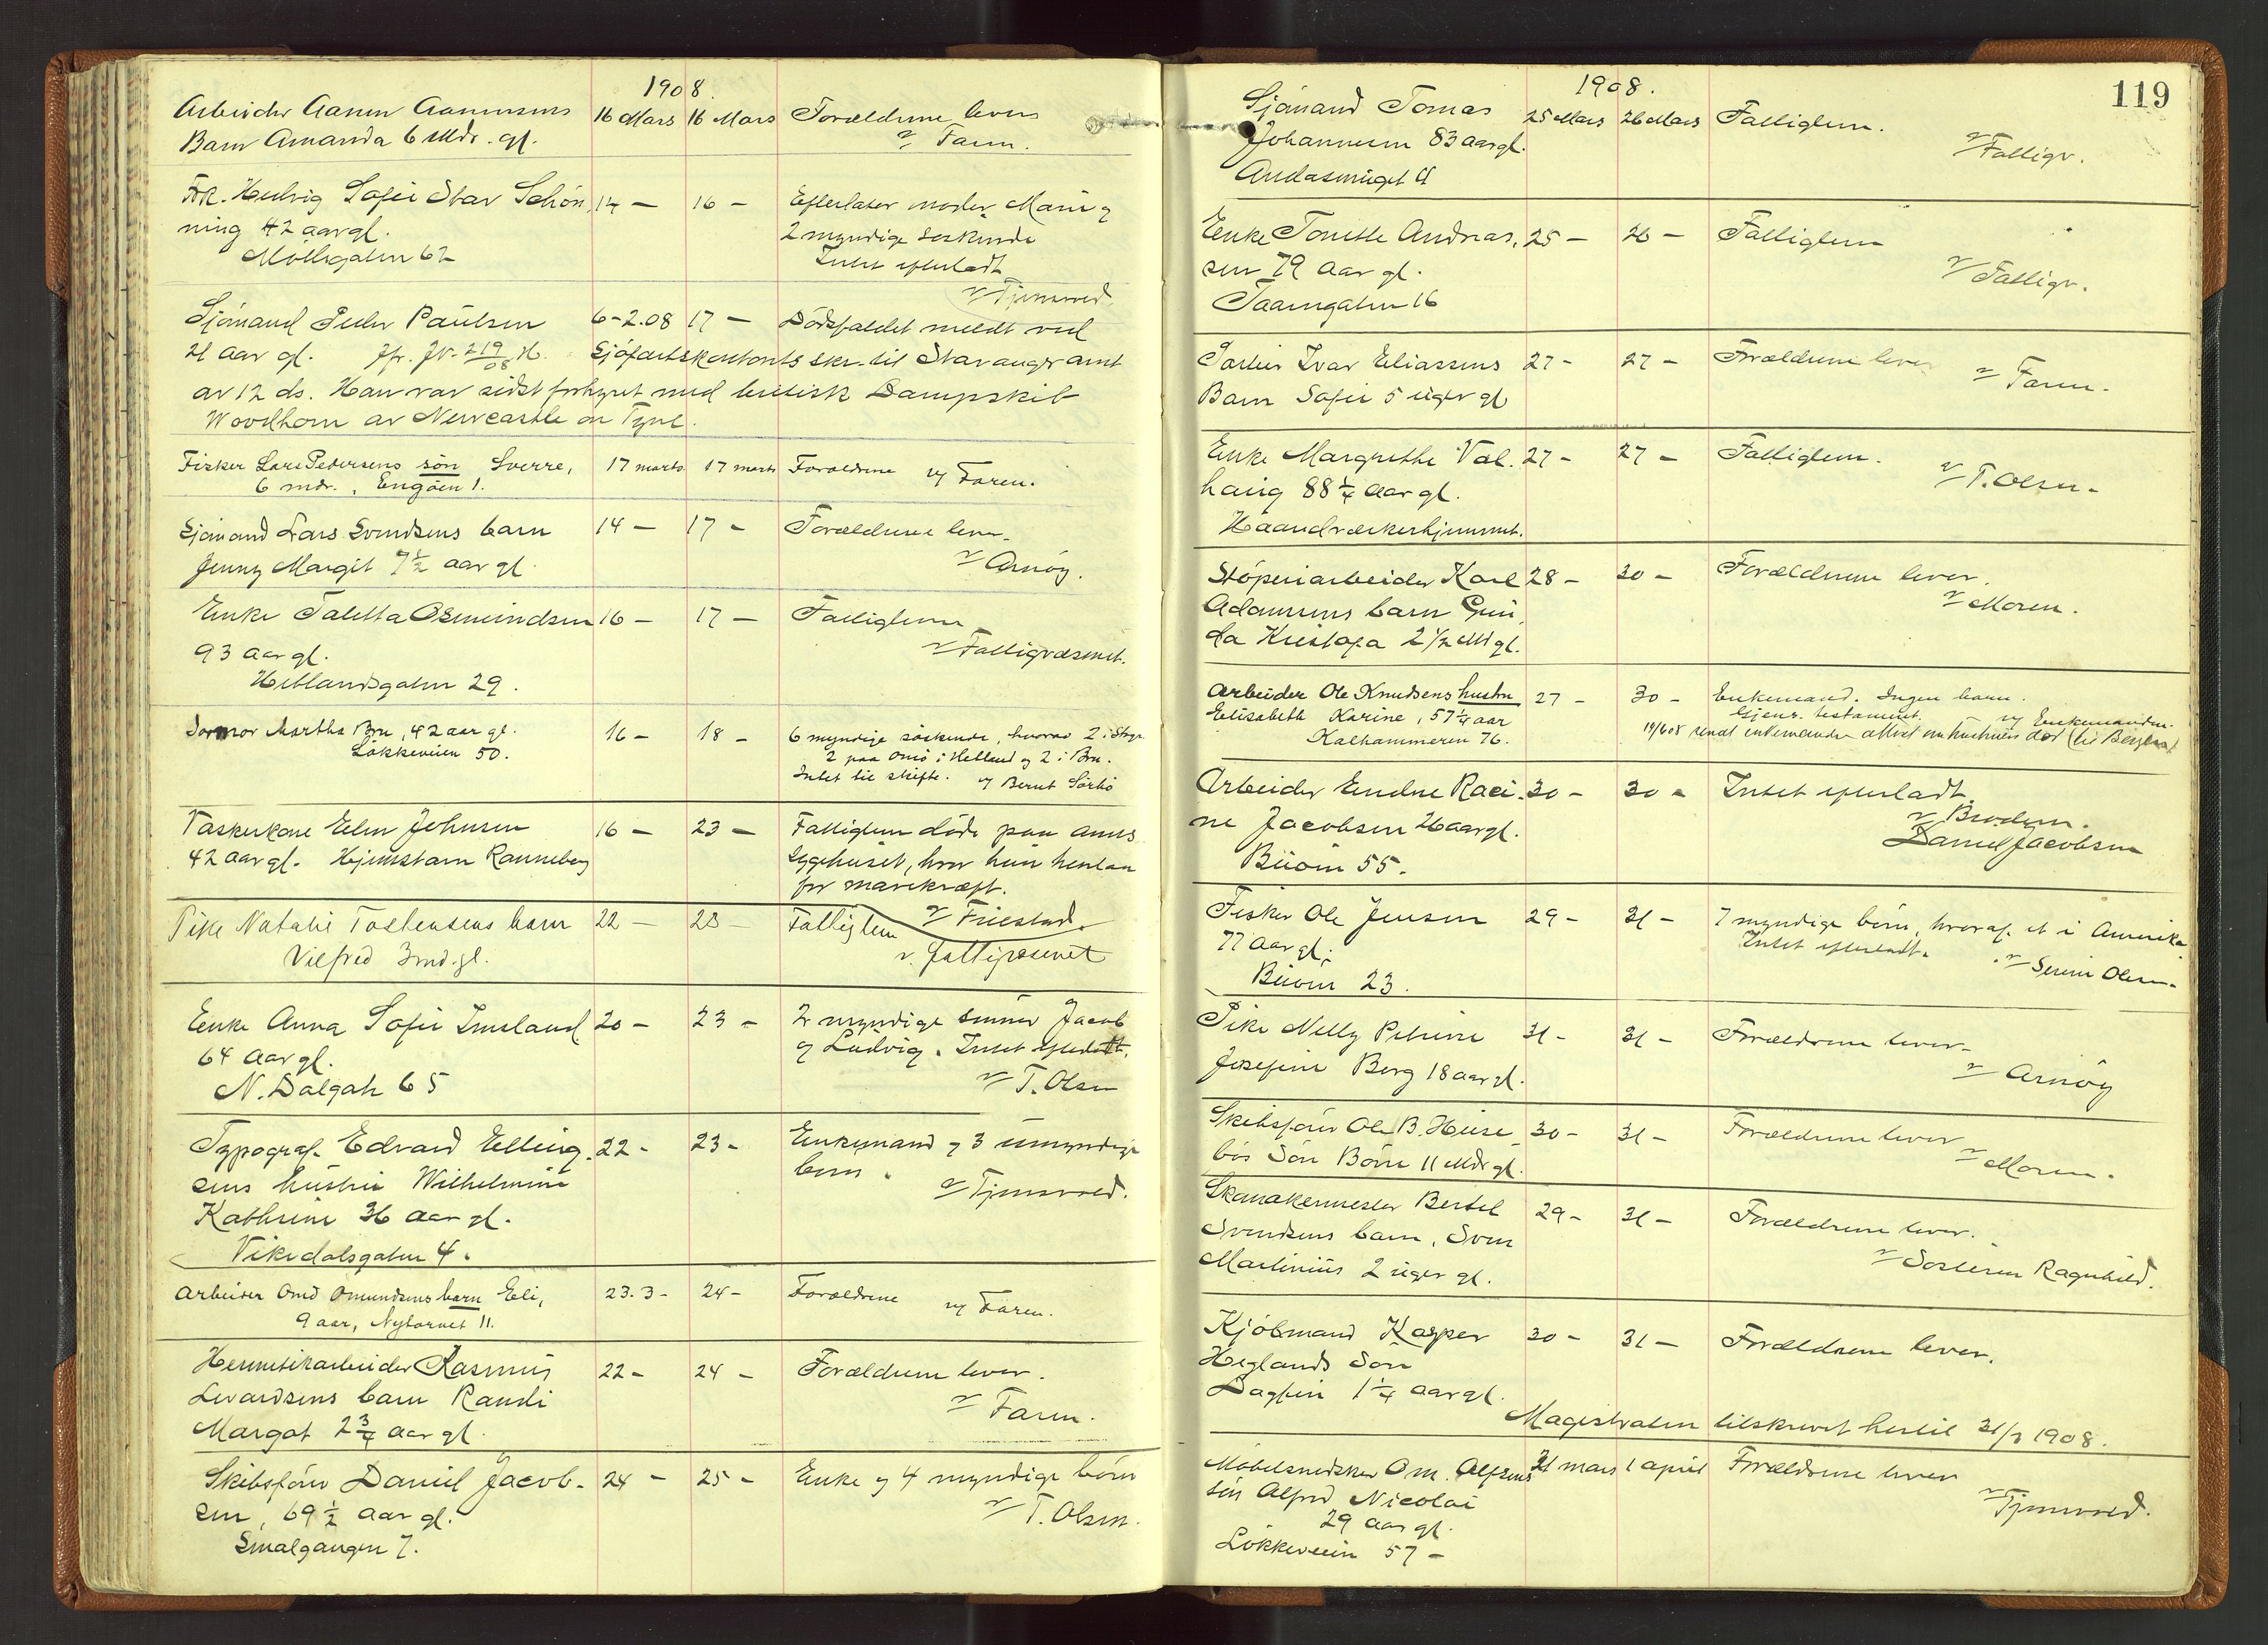 1908.
Arbeider Aanen Aanensens 16 Mars 16 Mars Forældrene lever
Barn Amanda 6 Mdr. gl. v/ Faren.
Frk. Hedvig Sofie Star Schøn 14 — 16 — Efterlater moder Marie og
ning 42 aar gl. 2 myndige søskende
Møllegaten 62 Intet efterladt
v/ Tjensvold
Sjømand Peder Paulsen 6-2.08 17 — Dødsfaldet meldt ved
21 aar gl. Jfr. Jv. 219/08 Sjøfartskontorets skr. til Stavanger amt
av 12 ds. Han var sidst forhyret med britisk Dampskib
Woodhorn av Newcastle on Tyne.
Fisker Lars Pedersens søn Sverre, 17 marts 17 marts Forældrene v/ Faren.
6 mdr., Engøen 1.
Sjømand Lars Svendsens barn 14 — 17 — Forældrene lever.
Jenny Margit 7 1/2 aar gl. v/ Arnøy.
Enke Taletta Osmundsen 16 — 17 — Fattiglem
93 aar gl. v/ Fattigvæsenet.
Hetlandsgaten 29.
Jormor Martha Bru, 42 aar gl. 16 — 18 — 6 myndige søskende, hvorav 2 i Stvgr.
Løkkeveien 50. 2 paa Omø i Hetland og 2 i Bru.
Intet til skifte. v/ Bernt Sørbø
Vaskerkone Elen Johnsen 16 — 23 — Fattiglem døde paa amts
42 aar gl. Hjemstavn Ranneberg sygehuset, hvor hun henlaa
for mavekræft.
v/ Friestad.
Pike Natalie Tostensens barn 22 — 23 — Fattiglem
Vilfred 3 md. gl. v. Fattigvæsenet
Enke Anna Sofie Imsland 20 — 23 — 2 myndige sønner Jacob
64 aar gl. og Ludvig. Intet efterladt.
N. Dalgate 65 v/ T. Olsen
Typograf Edvard Elling- 22 - 23 - Enkemand og 3 umyndige
sens hustru Wilhelmine børn.
Kathrine 36 aar gl. v/ Tjensvold.
Vikedalsgaten 4.
Arbeider Omd Omundsens barn Eli, 23.3 - 24 - Forældrene v/ Faren.
9 aar, Nytorvet 11.
Hermetikarbeider Rasmus 22 - 24 - Forældrene lever.
Sivardsens barn Randi v/ Faren.
Margot 2 3/4 aar gl.
Skibsfører Daniel Jacob- 24 - 25 - Enke og 4 myndige børn
sen, 69 1/2 aar gl. v/ T. Olsen.
Smalgangen 7.
119
1908.
Sjømand Tomas 25 Mars 26 Mars Fattiglem.
Johannesen 83 aar gl. v/ Fattigv.
Andasmuget 4
Enke Tonette Andreas- 25 - 26 - Fattiglem
sen 79 aar gl. v/ Fattigv.
Taarngaten 16
Portier Ivar Eliassens 27 - 27 - Forældrene lever v/ Faren.
Barn Sofie 5 uger gl
Enke Margrethe Val- 27 - 27 - Fattiglem.
haug 88 1/4 aar gl. v/ T. Olsen.
Haandværkerhjemmet.
Støperiarbeider Karl 28 - 30 - Forældrene lever.
Adamsens barn Gun- v/ Moren.
da Kristofa 2 1/2 Md gl.
Arbeider Ole Knudsens hustru 27 - 30 - Enkemand. Ingen barn.
Elisabeth Karine, 57 1/4 aar Gjens. testament. v/ Enkemanden.
Kalhammeren 76. sendt enkemanden attest om hustruens død (til Bergen)
Arbeider Endre Raci- 30 - 30 - Intet efterladt
ne Jacobsen 26 aar gl. v/ Broderen.
Buøen 55. Daniel Jacobsen
Fisker Ole Jensen 29 - 31 - 7 myndige børn, hvoraf et i Amerika
77 aar gl. Intet efterladt. v/ Severin Olsen.
Buøen 23.
Pike Nelly Petrine 31 - 31 - Forældrene lever.
Josefine Berg 18 aar gl. v/ Arnøy
Skibsfører Ole B. Huse- 30 - 31 - Forældrene lever
bøs Søn Børre 11 Mdr gl. v/ Moren.
Skomakermester Bertel 29 - 31 - Forældrene lever.
Svendsens barn, Sven v/ Søsteren Ragnhild.
Martinius 2 uger gl.
Kjøbmand Kasper 30 - 31 - Forældrene lever.
Heglands Søn
Dagfin 1 1/4 aar gl.
Magistraten tilskrevet hertil 31/3 1908.
Møbelsnedker O. M. Alfsens 31 mars 1 april Forældrene lever
søn Alfred Nicolai v/ Tjensvold.
29 aar gl.
Løkkeveien 57 -